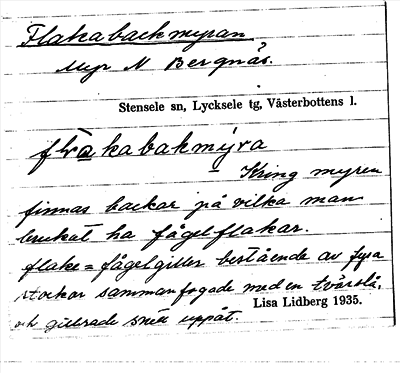 Flakabackmyran
Myr N Bergnäs.
Stensele sn, Lycksele tg, Västerbottens l.
kabakmýra
Kring myren
finnas backar på vilka man
brukat ha fågelflakar.
flake = fågelgiller bestående av fyra
stockar sammanfogade med en tvärslå,
och gillrade snett uppåt.
Lisa Lidberg 1935.